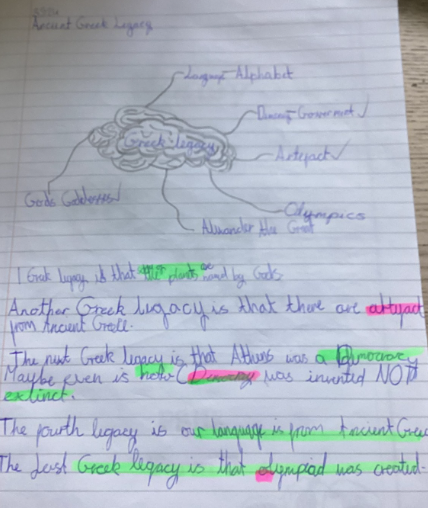 Ancient Greek Legacy
Language Alphabet
Democracy Government ✓
Greek legacy
Artefact ✓
Gods Goddesses ✓
Olympics
Alexander the Great
1 Greek legacy is that the planets are named by Gods.
Another Greek legacy is that there are artefact
from Ancient Greece.
The next Greek legacy is that Athens was a Democracy
Maybe even is how Democracy was invented NOT
extinct.
The fourth legacy is our language is from Ancient Gree
The Last Greek legacy is that olympiad was created.